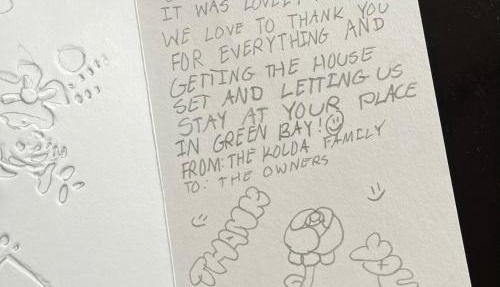 IT WAS LOVELY
WE LOVE TO THANK YOU
FOR EVERYTHING AND
GETTING THE HOUSE
SET AND LETTING US
STAY AT YOUR PLACE
IN GREEN BAY!
FROM: THE KOLDA FAMILY
TO: THE OWNERS
THANK
YOU